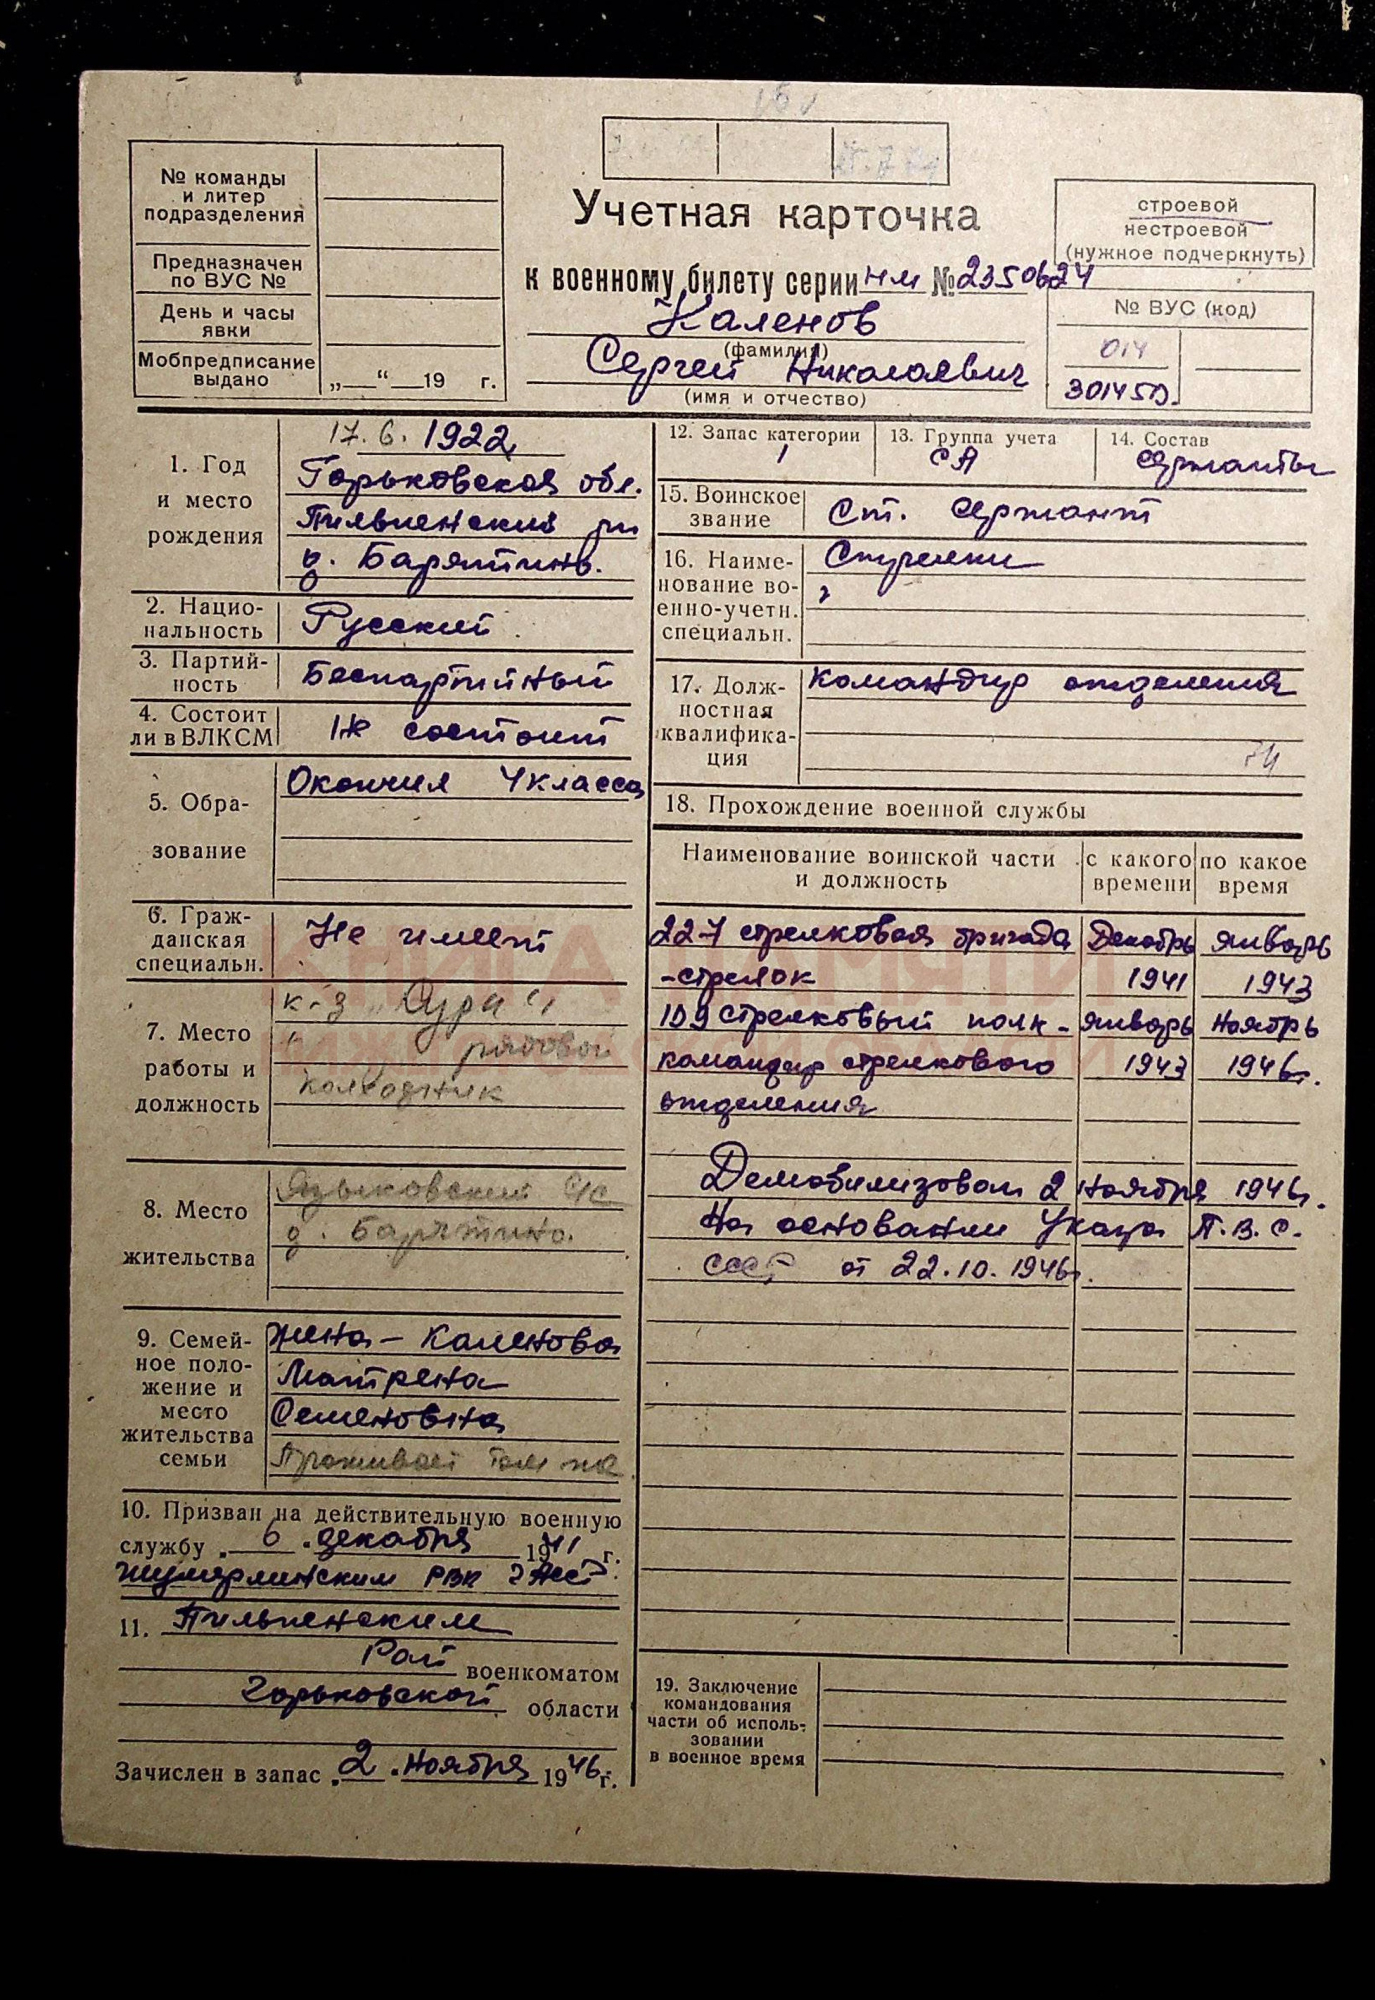 № команды
и литер
подразделения
Предназначен
по ВУС №
День и часы
явки
Мобпредписание
выдано
„ “ 19 г.
Учетная карточка
к военному билету серии НМ № 2350624
Каленов
(фамилия)
Сергей Николаевич
(имя и отчество)
строевой
нестроевой
(нужное подчеркнуть)
№ ВУС (код)
014
30145D.
1. Год
и место
рождения
17.6.1922
Горьковская обл.
Пильненский рн
д. Барятино.
2. Нацио-
нальность
Русский
3. Партий-
ность
Беспартийный
4. Состоит
ли в ВЛКСМ
Не состоит
5. Обра-
зование
Окончил 4 класса
6. Граж-
данская
специальн.
Не имеет
7. Место
работы и
должность
к-з „Сура“
рядовой
колходник
8. Место
жительства
Языковский с/с
д. Барятино.
9. Семей-
ное поло-
жение и
место
жительства
семьи
жена - Каленова
Матрена
Семеновна
Проживает там же
10. Призван на действительную военную
службу „6“ декабря 1941 г.
Шумерлинским РВК ЧАССР
11. Пильненским
Рай военкоматом
Горьковской области
Зачислен в запас „2“ ноября 1946 г.
12. Запас категории
1
13. Группа учета
СА
14. Состав
сержанты
15. Воинское
звание
Ст. сержант
16. Наиме-
нование во-
енно-учетн.
специальн.
Стрелки
17. Долж-
ностная
квалифика-
ция
командир отделения
74
18. Прохождение военной службы
Наименование воинской части
и должность
с какого
времени
по какое
время
227 стрелковая бригада Декабрь январь
-стрелок 1941 1943
109 стрелковый полк- январь ноябрь
командир стрелкового 1943 1946г.
отделения
Демобилизован 2 ноября 1946г.
На основании Указа П.В.С.
СССР от 22.10.1946г.
19. Заключение
командования
части об исполь-
зовании
в военное время
КНИГА ПАМЯТИ
НИЖЕГОРОДСКОЙ ОБЛАСТИ